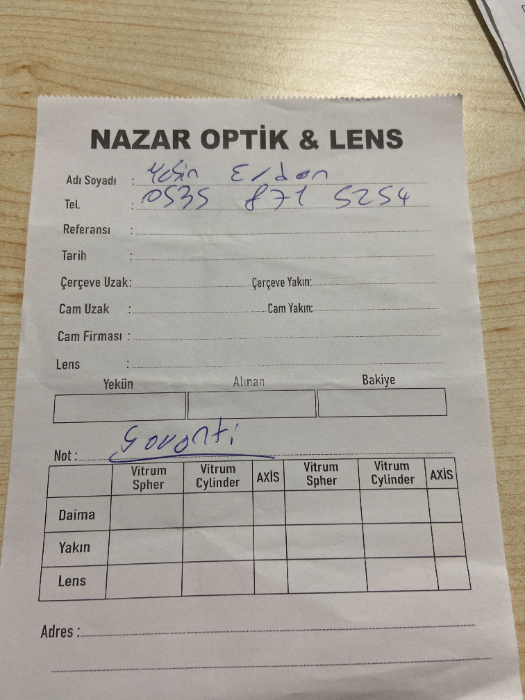 NAZAR OPTİK & LENS
Adı Soyadı : Yasin Erdan
Tel. : 0535 871 5254
Referansı :
Tarih :
Çerçeve Uzak: Çerçeve Yakın:
Cam Uzak : Cam Yakın:
Cam Firması :
Lens :
Yekün Alınan Bakiye
Not : Garanti
Vitrum Spher Vitrum Cylinder AXİS Vitrum Spher Vitrum Cylinder AXİS
Daima
Yakın
Lens
Adres :